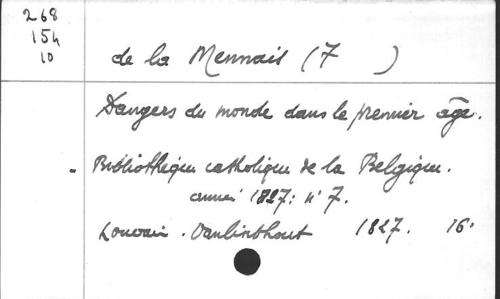 268
154
10
de la Mennais (F )
Dangers du monde dans le premier âge.
Bibliothèque catholique de la Belgique.
année 1827: n° 7.
Louvain. Vanlinthout 1827. 16°